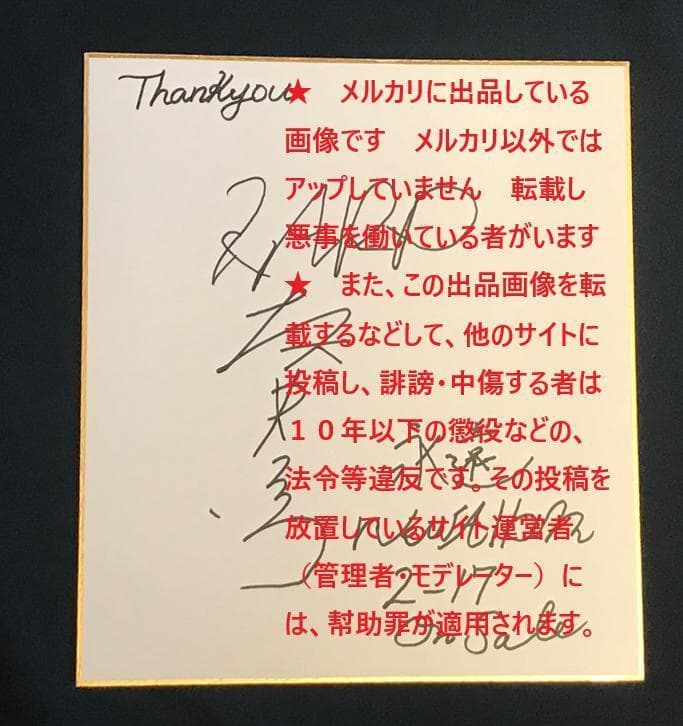 Thankyou
★　メルカリに出品している
画像です　メルカリ以外では
アップしていません　転載し
悪事を働いている者がいます
★　また、この出品画像を転
載するなどして、他のサイトに
投稿し、誹謗・中傷する者は
１０年以下の懲役などの、
法令等違反です。その投稿を
放置しているサイト運営者
（管理者・モデレーター）に
は、幇助罪が適用されます。
ZARD
永遠
2-17
On Sale